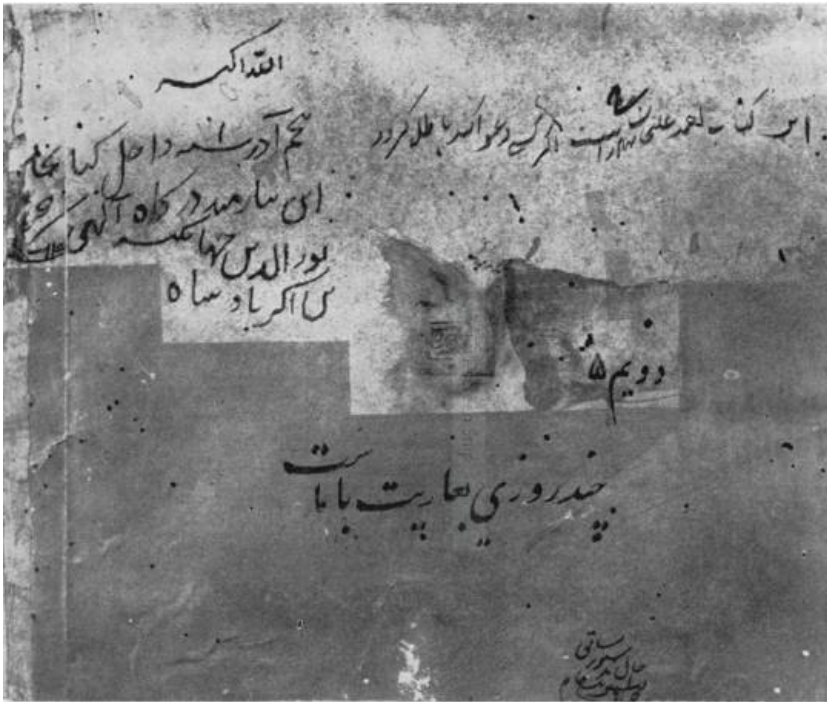 الله اکبر
پنجم آذر سنه ۱ داخل کتابخانه
این نیازمند درگاه الهی شد
نورالدین جهانگیر
بن اکبر پادشاه
این کتاب احمد علی است اگر کسی دعوا کند باطل گردد
دویم
چند روزی بعاریت با ماست